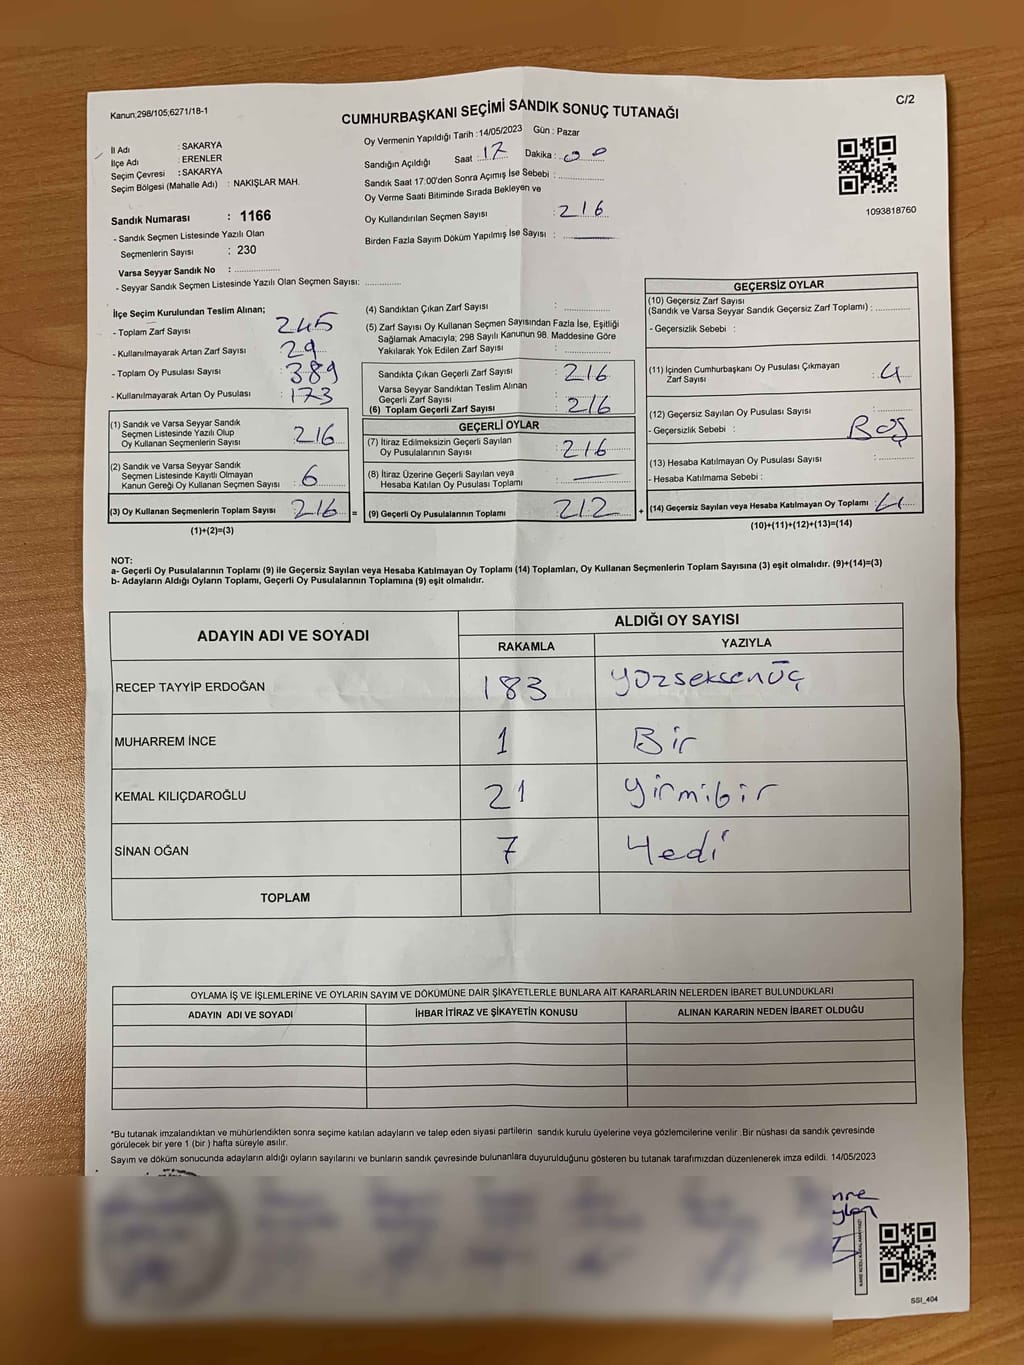 Kanun;298/105;6271/18-1
C/2
CUMHURBAŞKANI SEÇİMİ SANDIK SONUÇ TUTANAĞI
İl Adı : SAKARYA
İlçe Adı : ERENLER
Seçim Çevresi : SAKARYA
Seçim Bölgesi (Mahalle Adı) : NAKIŞLAR MAH.
Sandık Numarası : 1166
- Sandık Seçmen Listesinde Yazılı Olan
Seçmenlerin Sayısı : 230
Varsa Seyyar Sandık No : ....................
- Seyyar Sandık Seçmen Listesinde Yazılı Olan Seçmen Sayısı: ..................
Oy Vermenin Yapıldığı Tarih : 14/05/2023 Gün : Pazar
Sandığın Açıldığı Saat : 17 Dakika : 00
Sandık Saat 17:00'den Sonra Açımış İse Sebebi : ..................
Oy Verme Saati Bitiminde Sırada Bekleyen ve
Oy Kullandırılan Seçmen Sayısı : 216
Birden Fazla Sayım Döküm Yapılmış İse Sayısı :
1093818760
İlçe Seçim Kurulundan Teslim Alınan;
- Toplam Zarf Sayısı : 245
- Kullanılmayarak Artan Zarf Sayısı : 29
- Toplam Oy Pusulası Sayısı : 389
- Kullanılmayarak Artan Oy Pusulası : 173
(1) Sandık ve Varsa Seyyar Sandık
Seçmen Listesinde Yazılı Olup
Oy Kullanan Seçmenlerin Sayısı 216
(2) Sandık ve Varsa Seyyar Sandık
Seçmen Listesinde Kayıtlı Olmayan
Kanun Gereği Oy Kullanan Seçmen Sayısı 6
(3) Oy Kullanan Seçmenlerin Toplam Sayısı 216 =
(1)+(2)=(3)
(4) Sandıktan Çıkan Zarf Sayısı : ..................
(5) Zarf Sayısı Oy Kullanan Seçmen Sayısından Fazla İse, Eşitliği
Sağlamak Amacıyla; 298 Sayılı Kanunun 98. Maddesine Göre
Yakılarak Yok Edilen Zarf Sayısı : ..................
Sandıkta Çıkan Geçerli Zarf Sayısı : 216
Varsa Seyyar Sandıktan Teslim Alınan
Geçerli Zarf Sayısı :
(6) Toplam Geçerli Zarf Sayısı : 216
GEÇERLİ OYLAR
(7) İtiraz Edilmeksizin Geçerli Sayılan
Oy Pusulalarının Sayısı : 216
(8) İtiraz Üzerine Geçerli Sayılan veya
Hesaba Katılan Oy Pusulası Toplamı :
(9) Geçerli Oy Pusulalarının Toplamı : 212 +
GEÇERSİZ OYLAR
(10) Geçersiz Zarf Sayısı
(Sandık ve Varsa Seyyar Sandık Geçersiz Zarf Toplamı) : ............
- Geçersizlik Sebebi :
(11) İçinden Cumhurbaşkanı Oy Pusulası Çıkmayan
Zarf Sayısı : 4
(12) Geçersiz Sayılan Oy Pusulası Sayısı : ............
- Geçersizlik Sebebi : BOŞ
(13) Hesaba Katılmayan Oy Pusulası Sayısı : ............
- Hesaba Katılmama Sebebi :
(14) Geçersiz Sayılan veya Hesaba Katılmayan Oy Toplamı : 4
(10)+(11)+(12)+(13)=(14)
NOT:
a- Geçerli Oy Pusulalarının Toplamı (9) ile Geçersiz Sayılan veya Hesaba Katılmayan Oy Toplamı (14) Toplamları, Oy Kullanan Seçmenlerin Toplam Sayısına (3) eşit olmalıdır. (9)+(14)=(3)
b- Adayların Aldığı Oyların Toplamı, Geçerli Oy Pusulalarının Toplamına (9) eşit olmalıdır.
ADAYIN ADI VE SOYADI ALDIĞI OY SAYISI
RAKAMLA YAZIYLA
RECEP TAYYİP ERDOĞAN 183 yüzseksenüç
MUHARREM İNCE 1 Bir
KEMAL KILIÇDAROĞLU 21 yirmibir
SİNAN OĞAN 7 Yedi
TOPLAM
OYLAMA İŞ VE İŞLEMLERİNE VE OYLARIN SAYIM VE DÖKÜMÜNE DAİR ŞİKAYETLERLE BUNLARA AİT KARARLARIN NELERDEN İBARET BULUNDUKLARI
ADAYIN ADI VE SOYADI İHBAR İTİRAZ VE ŞİKAYETİN KONUSU ALINAN KARARIN NEDEN İBARET OLDUĞU
*Bu tutanak imzalandıktan ve mühürlendikten sonra seçime katılan adayların ve talep eden siyasi partilerin sandık kurulu üyelerine veya gözlemcilerine verilir .Bir nüshası da sandık çevresinde
görülecek bir yere 1 (bir ) hafta süreyle asılır.
Sayım ve döküm sonucunda adayların aldığı oyların sayılarını ve bunların sandık çevresinde bulunanlara duyurulduğunu gösteren bu tutanak tarafımızdan düzenlenerek imza edildi. 14/05/2023
SSI_404